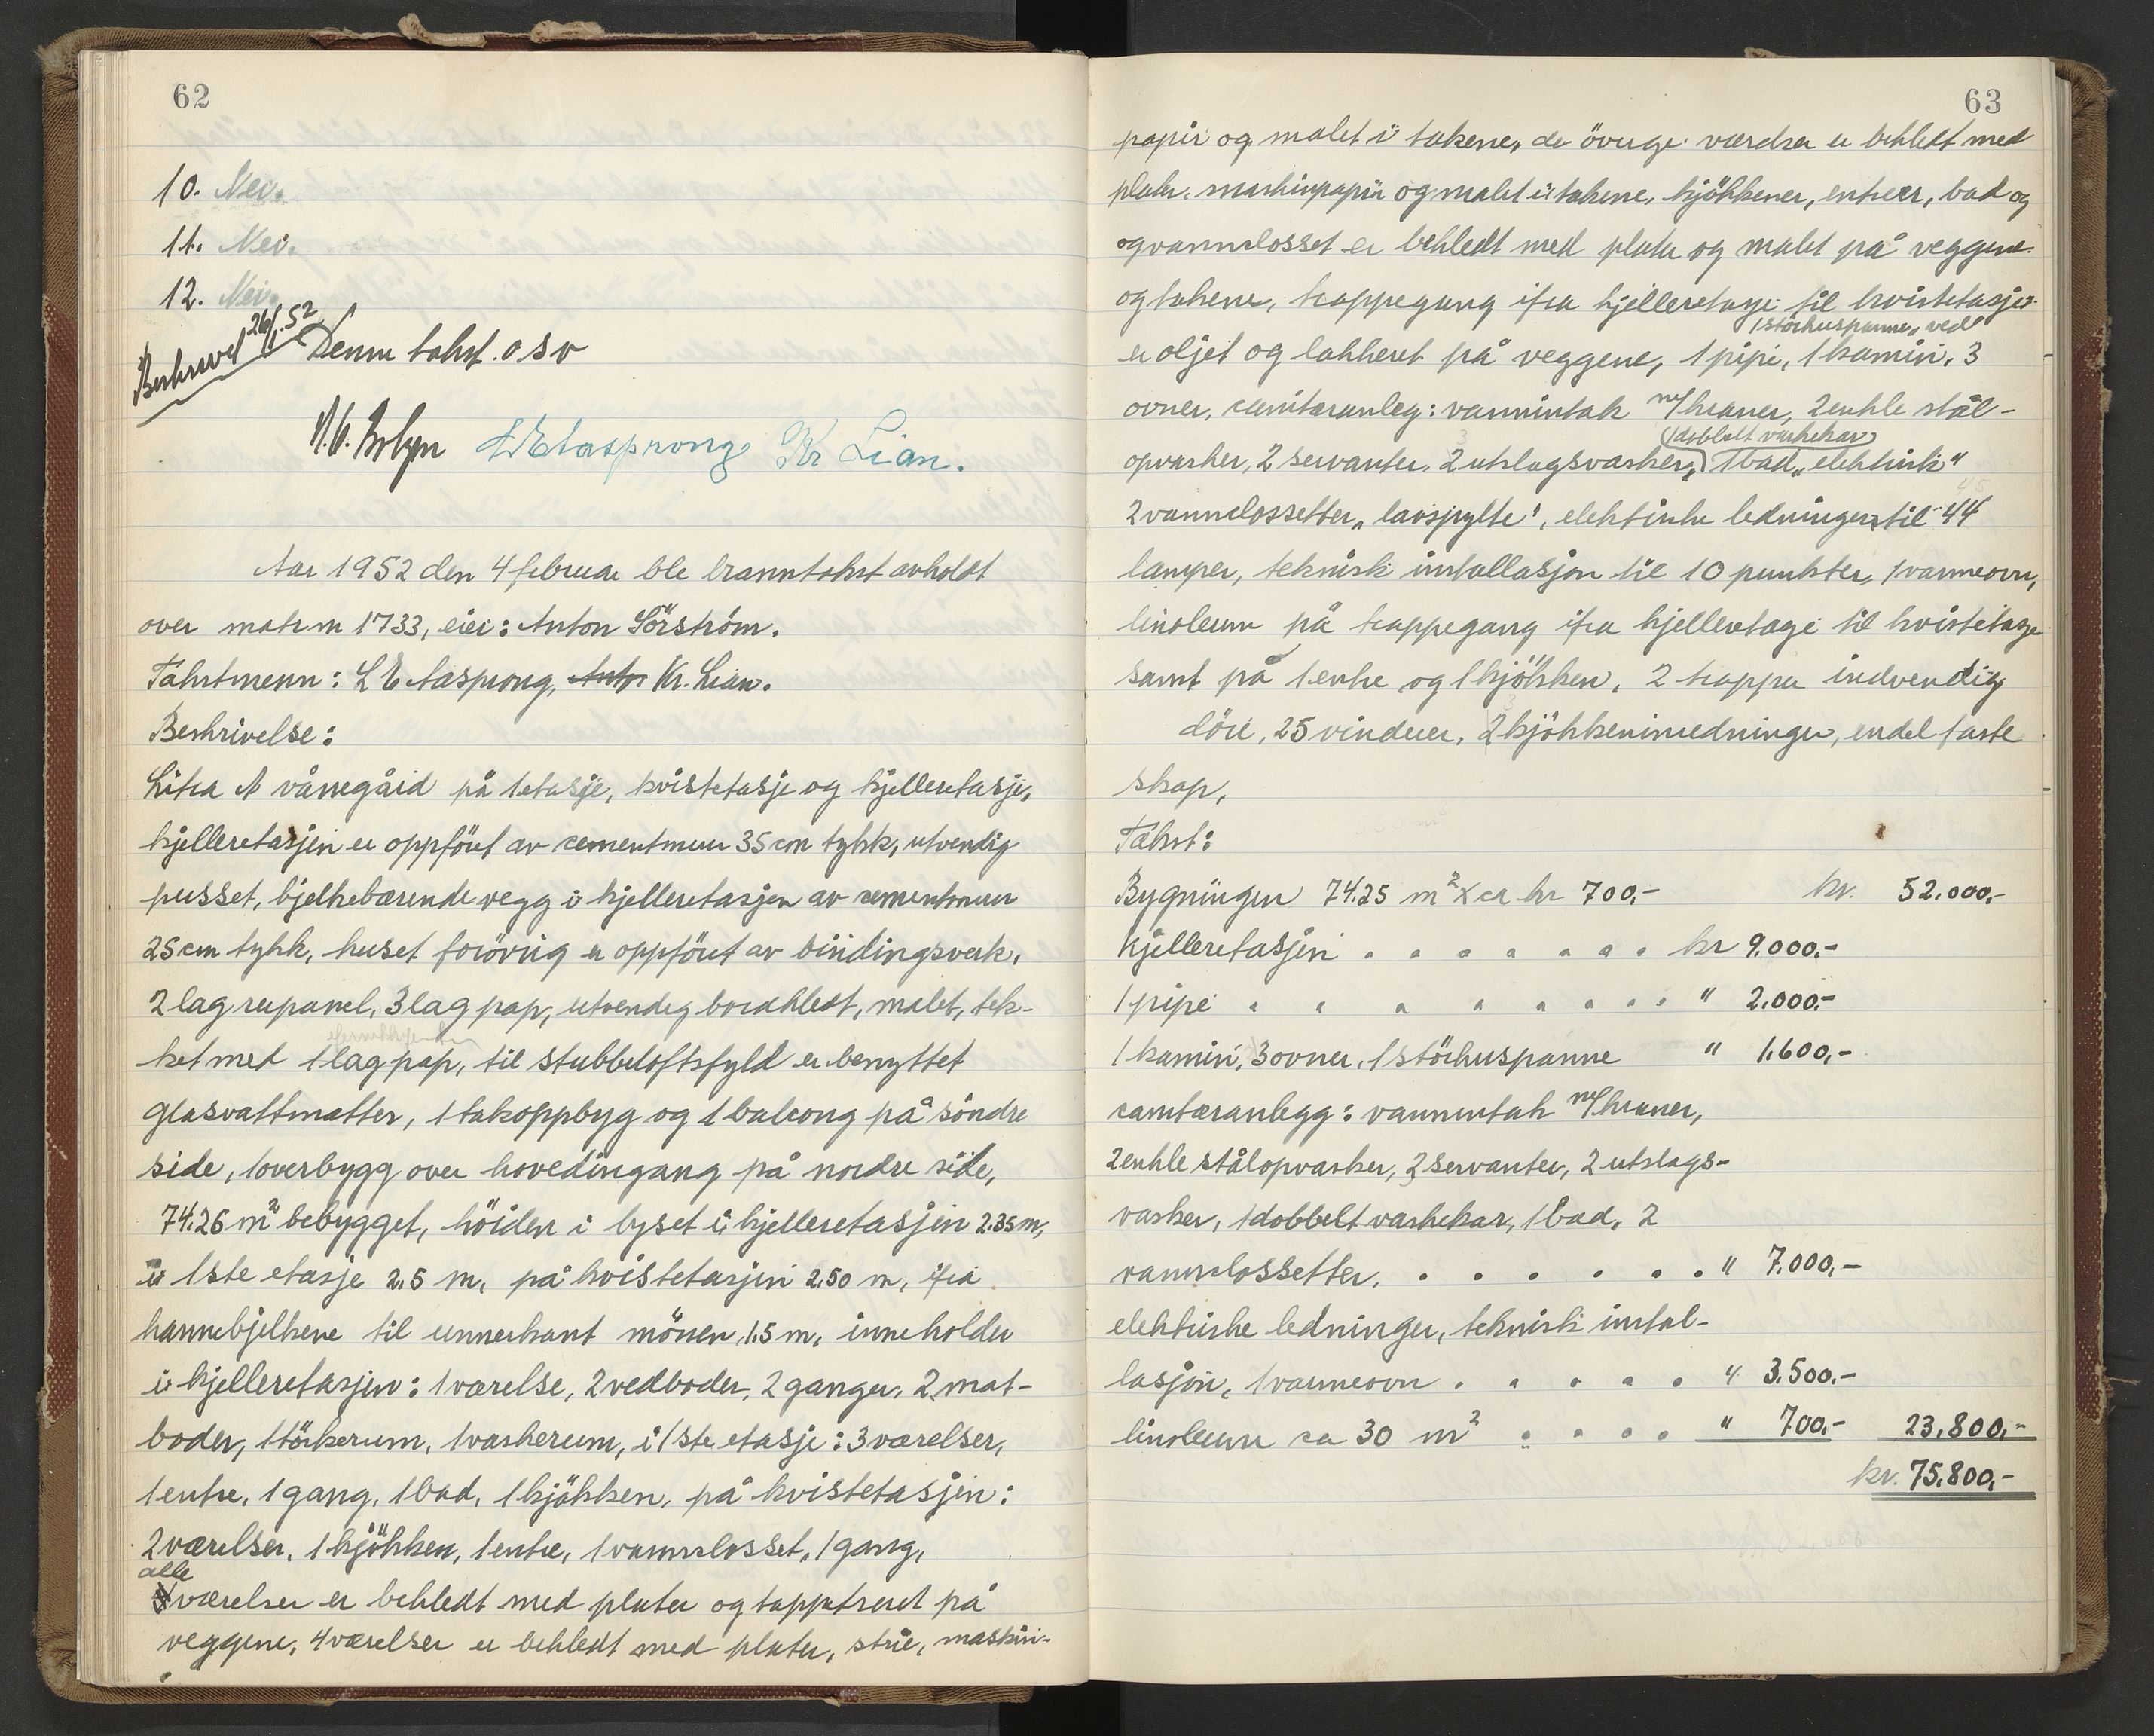 62
10. Nei.
11. Nei.
12. Nei.
Beskrevet 26/1.52
Denne takst. o s v
L E Tasprong Kr Lian.
Aar 1952 den 4 februar ble branntakst avholdt
over matr nr 1733, eier: Anton Sörström.
Takstmenn: L E Tasprong, Kr. Lian.
Beskrivelse:
Litra A vånegård på 1 etasje, kvistetasje og kjelleretasje,
kjelleretasjen er oppfört av cementmur 35 cm tykk, utvendig
pusset, bjelkebærende vegg i kjelleretasjen av cementmur
25 cm tykk, huset forövrig er oppfört av bindingsverk,
2 lag rupanel, 3 lag pap, utvendig bordkledt, malet, tek-
ket med 1 lag pap, til stubbeloftsfyld er benyttet
glasvattmatter, 1 takoppbyg og 1 balcong på söndre
side, 1 overbygg over hovedingang på nordre side,
74.26 m² bebygget, höiden i lyset i kjelleretasjen 2.35 m,
i 1ste etasje 2.5 m, på kvistetasjen 2.50 m, ifra
hannebjelkene til unnerkant mönen 1.5 m, inneholder
i kjelleretasjen: 1 værelse, 2 vedboder, 2 ganger, 2 mat-
boder, 1 törkerum, 1 vaskerum, i 1ste etasje: 3 værelser,
1 entre, 1 gang, 1 bad, 1 kjökken, på kvistetasjen:
2 værelser, 1 kjökken, 1 entre, 1 vannclosset, 1 gang,
alle
værelser er bekledt med plater og tappetseret på
veggene, 4 værelser er bekledt med plater, strie, maskin-
63
papir og malet i takene, de övrige værelser er bekledt med
plater, maskinpapir og malet i takene, kjökkener, entreer, bad og
og vannclosset er bekledt med plater og malet på veggene
og takene, trappegang ifra kjelleretasje til kvistetasje
1 störhuspanne, ved
er oljet og lakkeret på veggene, 1 pipe, 1 kamin, 3
ovner, sanitæranleg: vanninntak m/ kraner, 2 enkle stål-
1 dobbelt vaskekar
opvasker, 2 servanter, 2 utslagsvasker, 1 bad "elektrisk"
2 vannclossetter "lavspylte", elektriske ledninger til 44
lamper, teknisk installasjon til 10 punkter, 1 varmeovn,
linoleum på trappegang ifra kjelleretage til kvistetage
samt på 1 entre og 1 kjökken, 2 trapper indvendig
döre, 25 vinduer, 2 kjökkeninredninger, endel faste
skap,
Takst:
Bygningen 74.25 m² x ca kr 700,- kr. 52.000,-
Kjelleretasjen . . . . . . . . kr 9.000,-
1 pipe . . . . . . . . . " 2.000,-
1 kamin, 3 ovner, 1 störhuspanne " 1.600,-
sanitæranlegg: vanninntak m/ kraner,
2 enkle stålopvasker, 2 servanter, 2 utslags-
vasker, 1 dobbelt vaskekar, 1 bad, 2
vannclossetter. . . . . . . . " 7.000,-
elektriske ledninger, teknisk instal-
lasjon, 1 varmeovn . . . . . " 3.500,-
linoleum ca 30 m² . . . . " 700,- 23.800,-
kr. 75.800,-